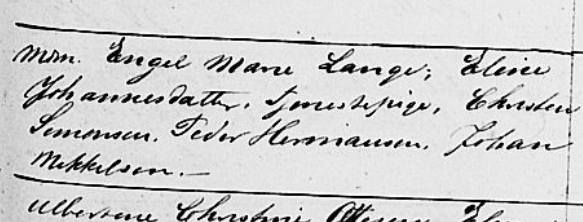 Mdm. Engel Marie Lange, Eline
Johannesdatter, tjenestepige, Christen
Simonsen. Peder Hermansen. Johan
Mikkelsen. —
Albertine Christine